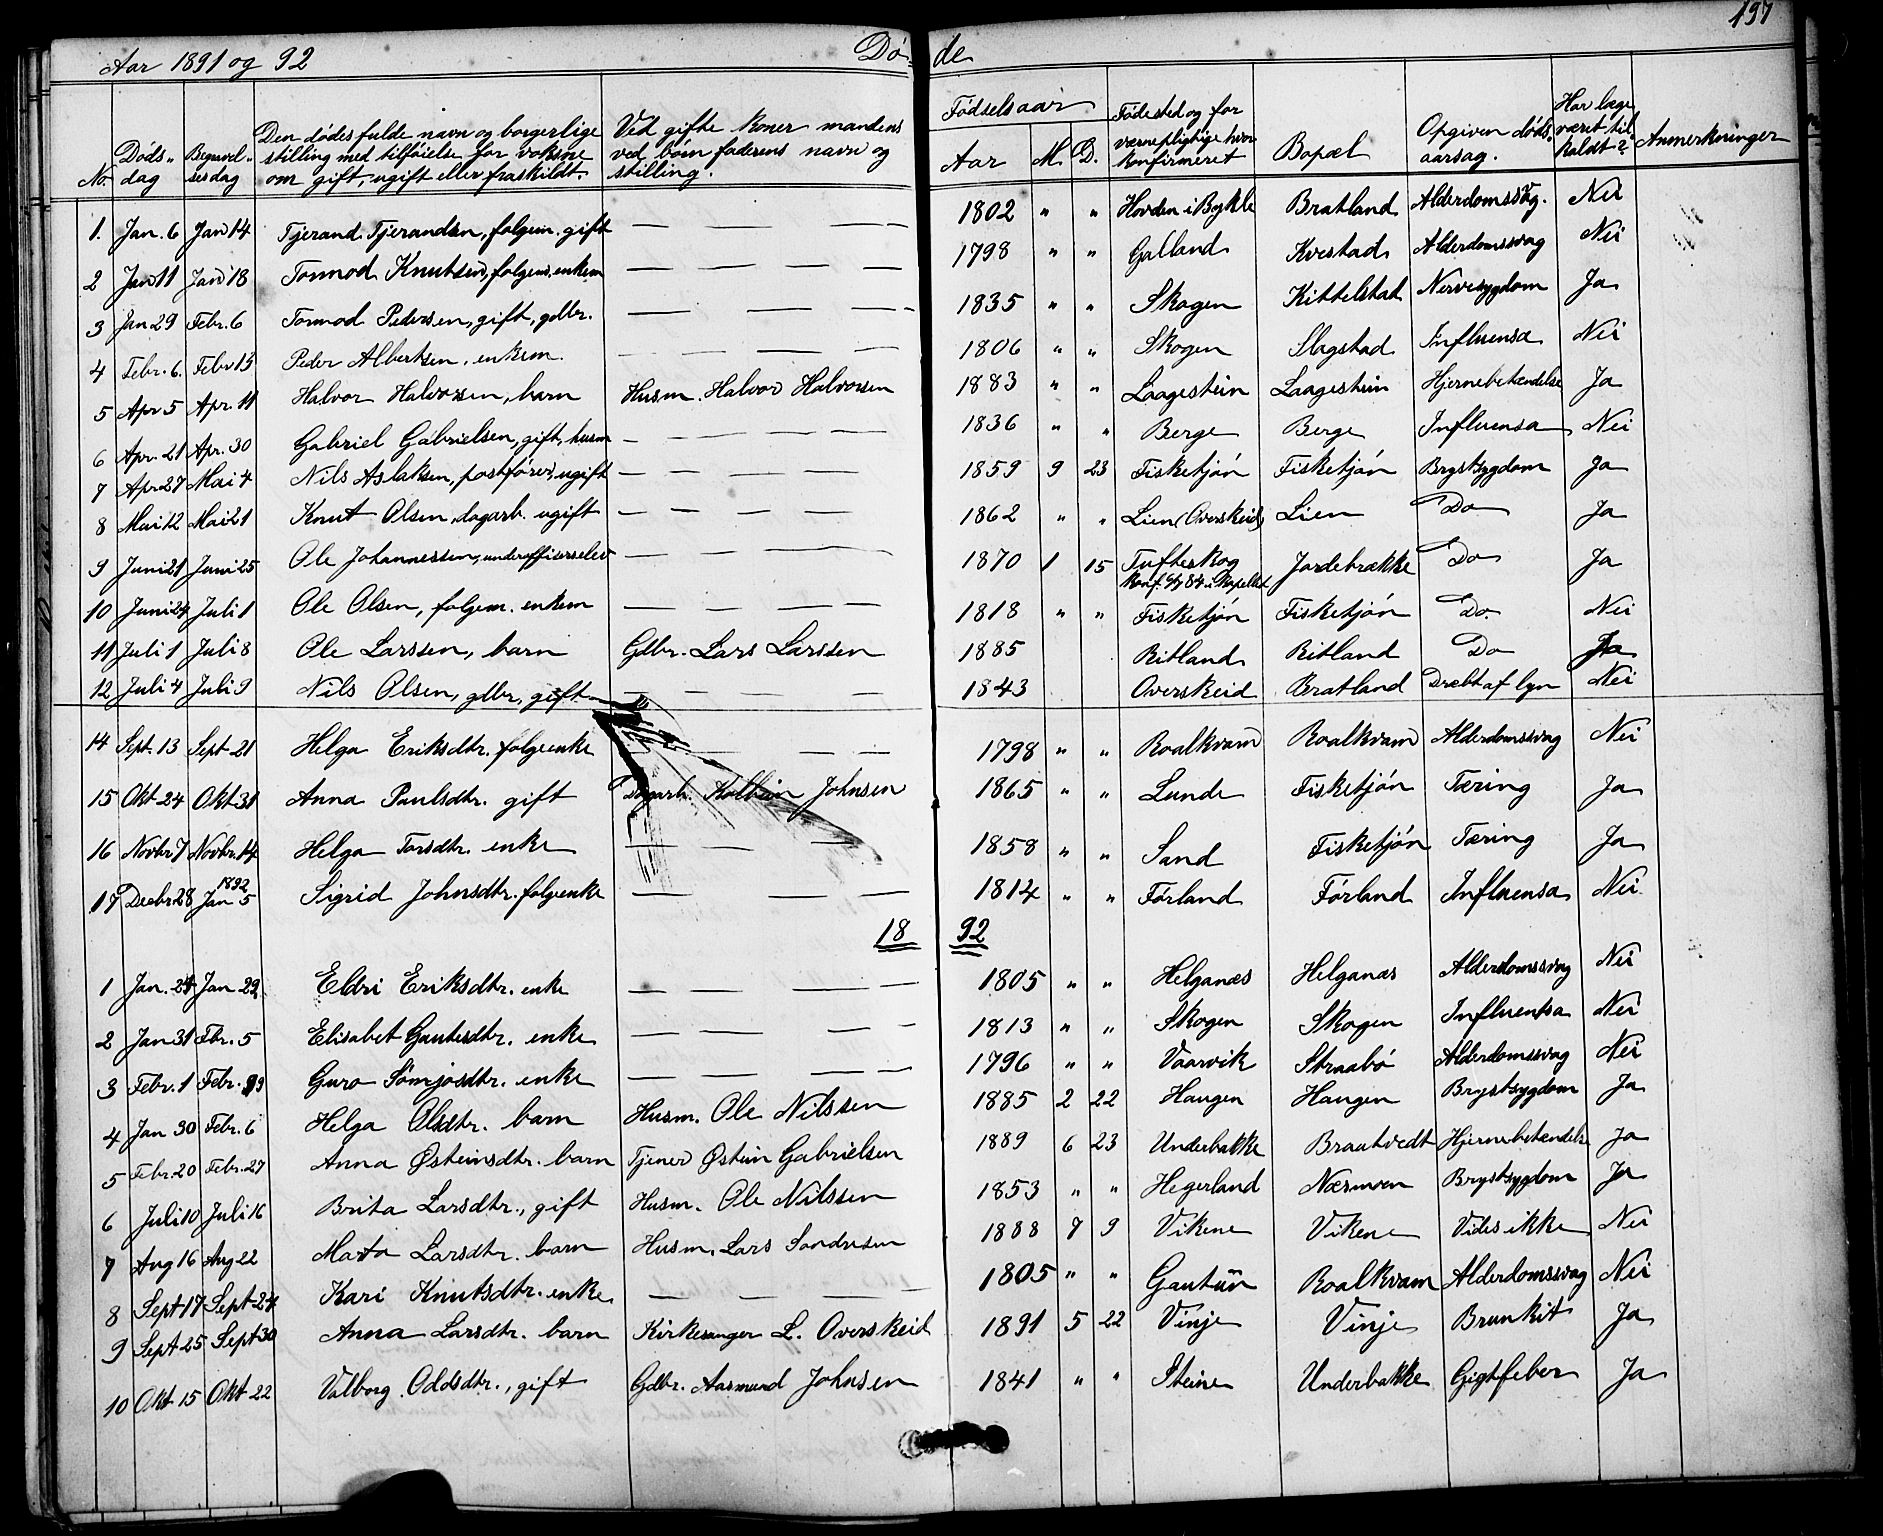 197
Aar 1891 og 92 Dö de
No. Döds- dag Begravel- sesdag Den dödes fulde navn og borgerlige stilling med tilföielse for voksne om gift, ugift eller fraskildt. Ved gifte koner mandens ved börn faderens navn og stilling. Födselsaar Aar M. D. Födested og for værnepligtige hvor konfirmeret Bopæl Opgiven döds- aarsag. Har læge været til- kaldt? Anmerkninger
1. Jan. 6 Jan 14 Tjerand Tjerandsen, folgem. gift — — — — 1802 " " Hovden i Bykle Bratland Alderdomssvag. Nei
2 Jan 11 Jan 18 Tormod Knutsen, folgem. enkem — — — — 1798 " " Galland Kvestad Alderdomssvag Nei
3 Jan 29 Febr. 6 Tormod Pedersen, gift, gdbr. — — — — 1835 " " Skogen Kittelstad Nervesygdom Ja
4 Febr. 6. Febr 13 Peder Albertsen, enkem. — — — — 1806 " " Skogen Slagstad Influensa Nei
5 Apr 5 Apr. 11 Halvor Halvorsen, barn Husm. Halvor Halvorsen 1883 " " Laagestein Laagestein Hjernebetændelse Ja
6 Apr. 21 Apr. 30 Gabriel Gabrielsen, gift, husm — — — — 1836 " " Berge Berge Influensa Nei
7 Apr 27 Mai 4 Nils Aslaksen, postförer, ugift — — — — 1859 9 23 Fisketjön Fisketjön Brystsygdom Ja
8 Mai 12 Mai 21 Knut Olsen, dagarb. ugift — — — — 1862 " " Lien (Overskeid) Lien Do Ja
9 Juni 21 Juni 25 Ole Johannessen, underofficerselev — — — — 1870 1 15 Tufteskog Jordebrække Do Ja
10 Juni 24 Juli 1 Ole Olsen, folgem. enkem — — — — 1818 " " Fisketjön Fisketjön Do. Nei
11 Juli 1 Juli 8 Ole Larssen, barn Gdbr. Lars Larssen 1885 Ritland Ritland Do Ja
12 Juli 4 Juli 9 Nils Olsen, gdbr, gift — — — 1843 Overskeid Bratland Dræbt af lyn Nei
14 Sept. 13 Sept 21 Helga Eriksdtr. folgeenke — — — 1798 " " Roalkvam Roalkvam Alderdomssvag Nei
15 Okt 24 Okt 31 Anna Paulsdtr. gift Dagarb. Kolbein Johnsen 1865 " " Lunde Fisketjön Tæring Ja
16 Novbr 7 Novbr. 14 Helga Torsdtr. enke — — — 1858 " " Sand Fisketjön Tæring Ja
17 Decbr 28 1892 Jan 5 Sigrid Johnsdtr. folgeenke — — — 1814 " " Förland Förland Influensa Nei
18 92
1 Jan. 24 Jan 29 Eldri Eriksdtr. enke — — — — 1805 " " Helganæs Helganæs Alderdomssvag Nei
2 Jan 31 Fbr. 5 Elisabet Gautesdtr. enke — — — — 1813 " " Skogen Skogen Influentsa Nei
3 Febr. 1 Febr. 9 Guro Sömjosdtr. enke — — — — 1796 " " Vaarvik Straabö Alderdomssvag Nei
4 Jan 30 Febr. 6 Helga Olsdtr. barn Husm. Ole Nilssen 1885 2 22 Haugen Haugen Brystsygdom Ja
5 Febr. 20 Febr. 27 Anna Østeinsdtr. barn Tjener Østein Gabrielsen 1889 6 23 Underbakke Brautvedt Hjernebetændelse Ja
6 Juli 10 Juli 16 Brita Larsdtr., gift Husm. Ole Nilssen 1853 " " Hegerland Næsmoen Brystsygdom Ja
7 Aug 16 Aug 22 Marta Larsdtr. barn Husm. Lars Sondresen 1888 7 9 Vikene Vikene Vides ikke Nei
8 Sept 17 Sept 24 Kari Knutsdtr. enke — — — — 1805 " " Gautun Roalkvam Alderdomssvag Nei
9 Sept 25 Sept 30 Anna Larsdtr. barn Kirkesanger L. Overskeid 1891 5 22 Vinje Vinje Brunkit Ja
10 Okt 15 Okt 22 Valborg Oddsdtr., gift Gdbr. Aasmund Johnsen 1841 " " Steine Underbakke Gigtfeber Ja